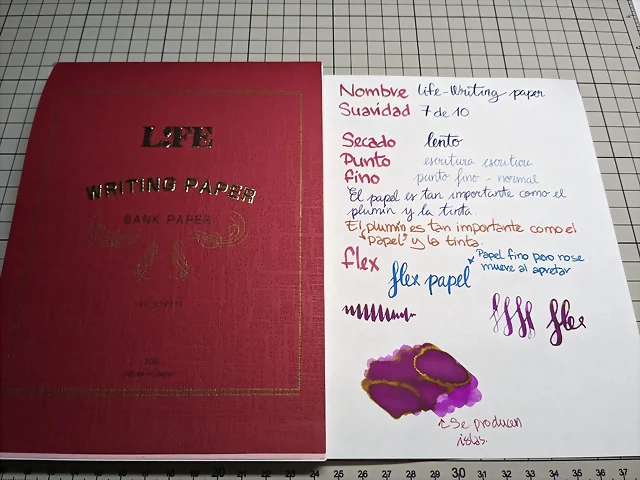 L!FE
WRITING PAPER
BANK PAPER
Nombre Life-Writing paper
Suavidad 7 de 10
Secado lento
Punto escritura escritura
fino punto fino - normal
El papel es tan importante como el
plumín y la tinta.
El plumín es tan importante como el
"papel" y la tinta.
flex
flex papel
* Papel fino pero no se
mueve al apretar
flex
Se producen
islas.
24 25 26 27 28 29 30 31 32 33 34 35 36 37